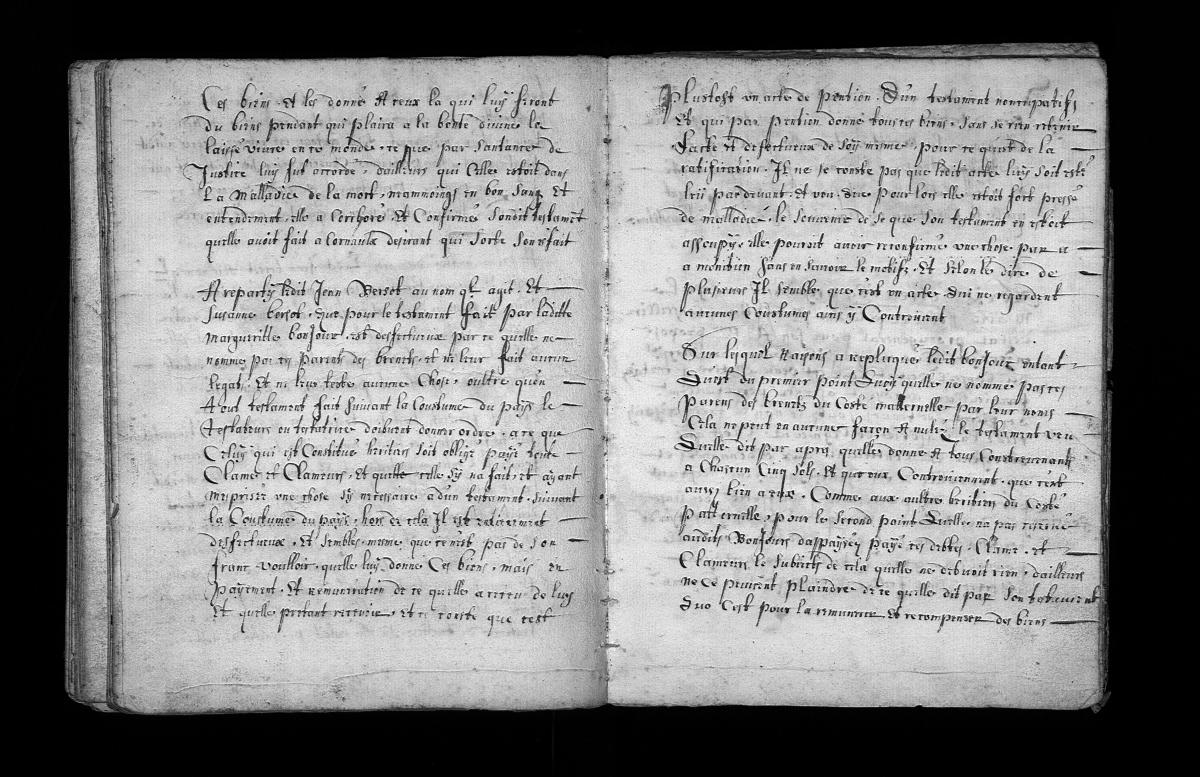 Ces biens et les donne A ceux la qui luÿ feront
du biens pendant qui plaira a la bonté divine le
laisse vivre en ce monde, ce que par Santance de
Justice luy fut accordé, d'ailleurs qui Elle estoit dans
La Malladie de la mort, neammoings en bon Sang Et
entendement, elle a Et Confirmé Sondit testament
quelle avoit fait a Cornaulx desirant qui Sorte Son effait
A repartÿ ledit Jean Versot au nom ql agit, Et
Susanne bersot, que pour le testament fait par laditte
Margueritte bonjour, est desfectueux par ce quelle ne
nomme pas ces parents des brenets, et ne leur fait aucun
legat, Et ne leur teste aucune Chose, oultre quen
tout testament fait suivant la Coustume du paÿs le
testateurs ou testatrice doibvent donner ordre, a ce que
Celuÿ qui est Constitué heritier soit obligé paÿé tout
Clame et Clameurs, Et quitte celle sÿ na fait, et aÿant
mesprisez une chose sÿ necessaire a dun testament, suivant
la Coustume du paÿs, hors de cela Il est entierement
desfectueux, Et sembles mesme que ce nest pas de Son
franc voulloir, quelle luy donne Ces biens, mais en
Paÿement, Et remuneration de ce quelle a receu de luÿ
Et quelle pretant recevoir, et ce conste que cest
Plustost un acte de pention, D'un testament noncupatifz
Et qui par pention donne tous ces biens, Sans se rien retenir
Lacte est desfectueux de Soÿ mesme, pour ce quest de la
ratification, Il ne se conste pas que ledit acte luÿ soit esté
leu par devant, et von, que pour lors elle estoit fort pressé
de malladie, le souvenir de se que Son testament en estoit
assoupÿ, elle pouroit avoir reconfirmé une chose par a
a monition Sans en scavoir le motifz, Et selon le dire de
plusieurs Il semble que cest un acte qui ne regardent
aucunes Coustumes ains y Contrevient
Sur lesquel Raisons a Repliqué ledit bonjour entant
Quest du premier point Quoÿ quelle ne nomme pas ces
parens des brenetz du Costé matternelle par leur noms
Cela ne peut en aucune facon A nulz le testament veu
Quelle dit par apres quelle donne A tous Contrevenants
a Chascun Cinq Sols, Et que eux Contreviennent, que cest
aussi bien a eux, Comme aux aultre heritiers du Costé
Patternelle, pour le Second point Quelle na pas
audits Bonjours paÿé ces debtes, Clame, et
Clameurs, le Subiects de cela quelle ne debvoit rien, dailleurs
ne ce peuvent plaindre de ce quelle dit par Son testament
que Cest pour la remunerer et recompenser des biens